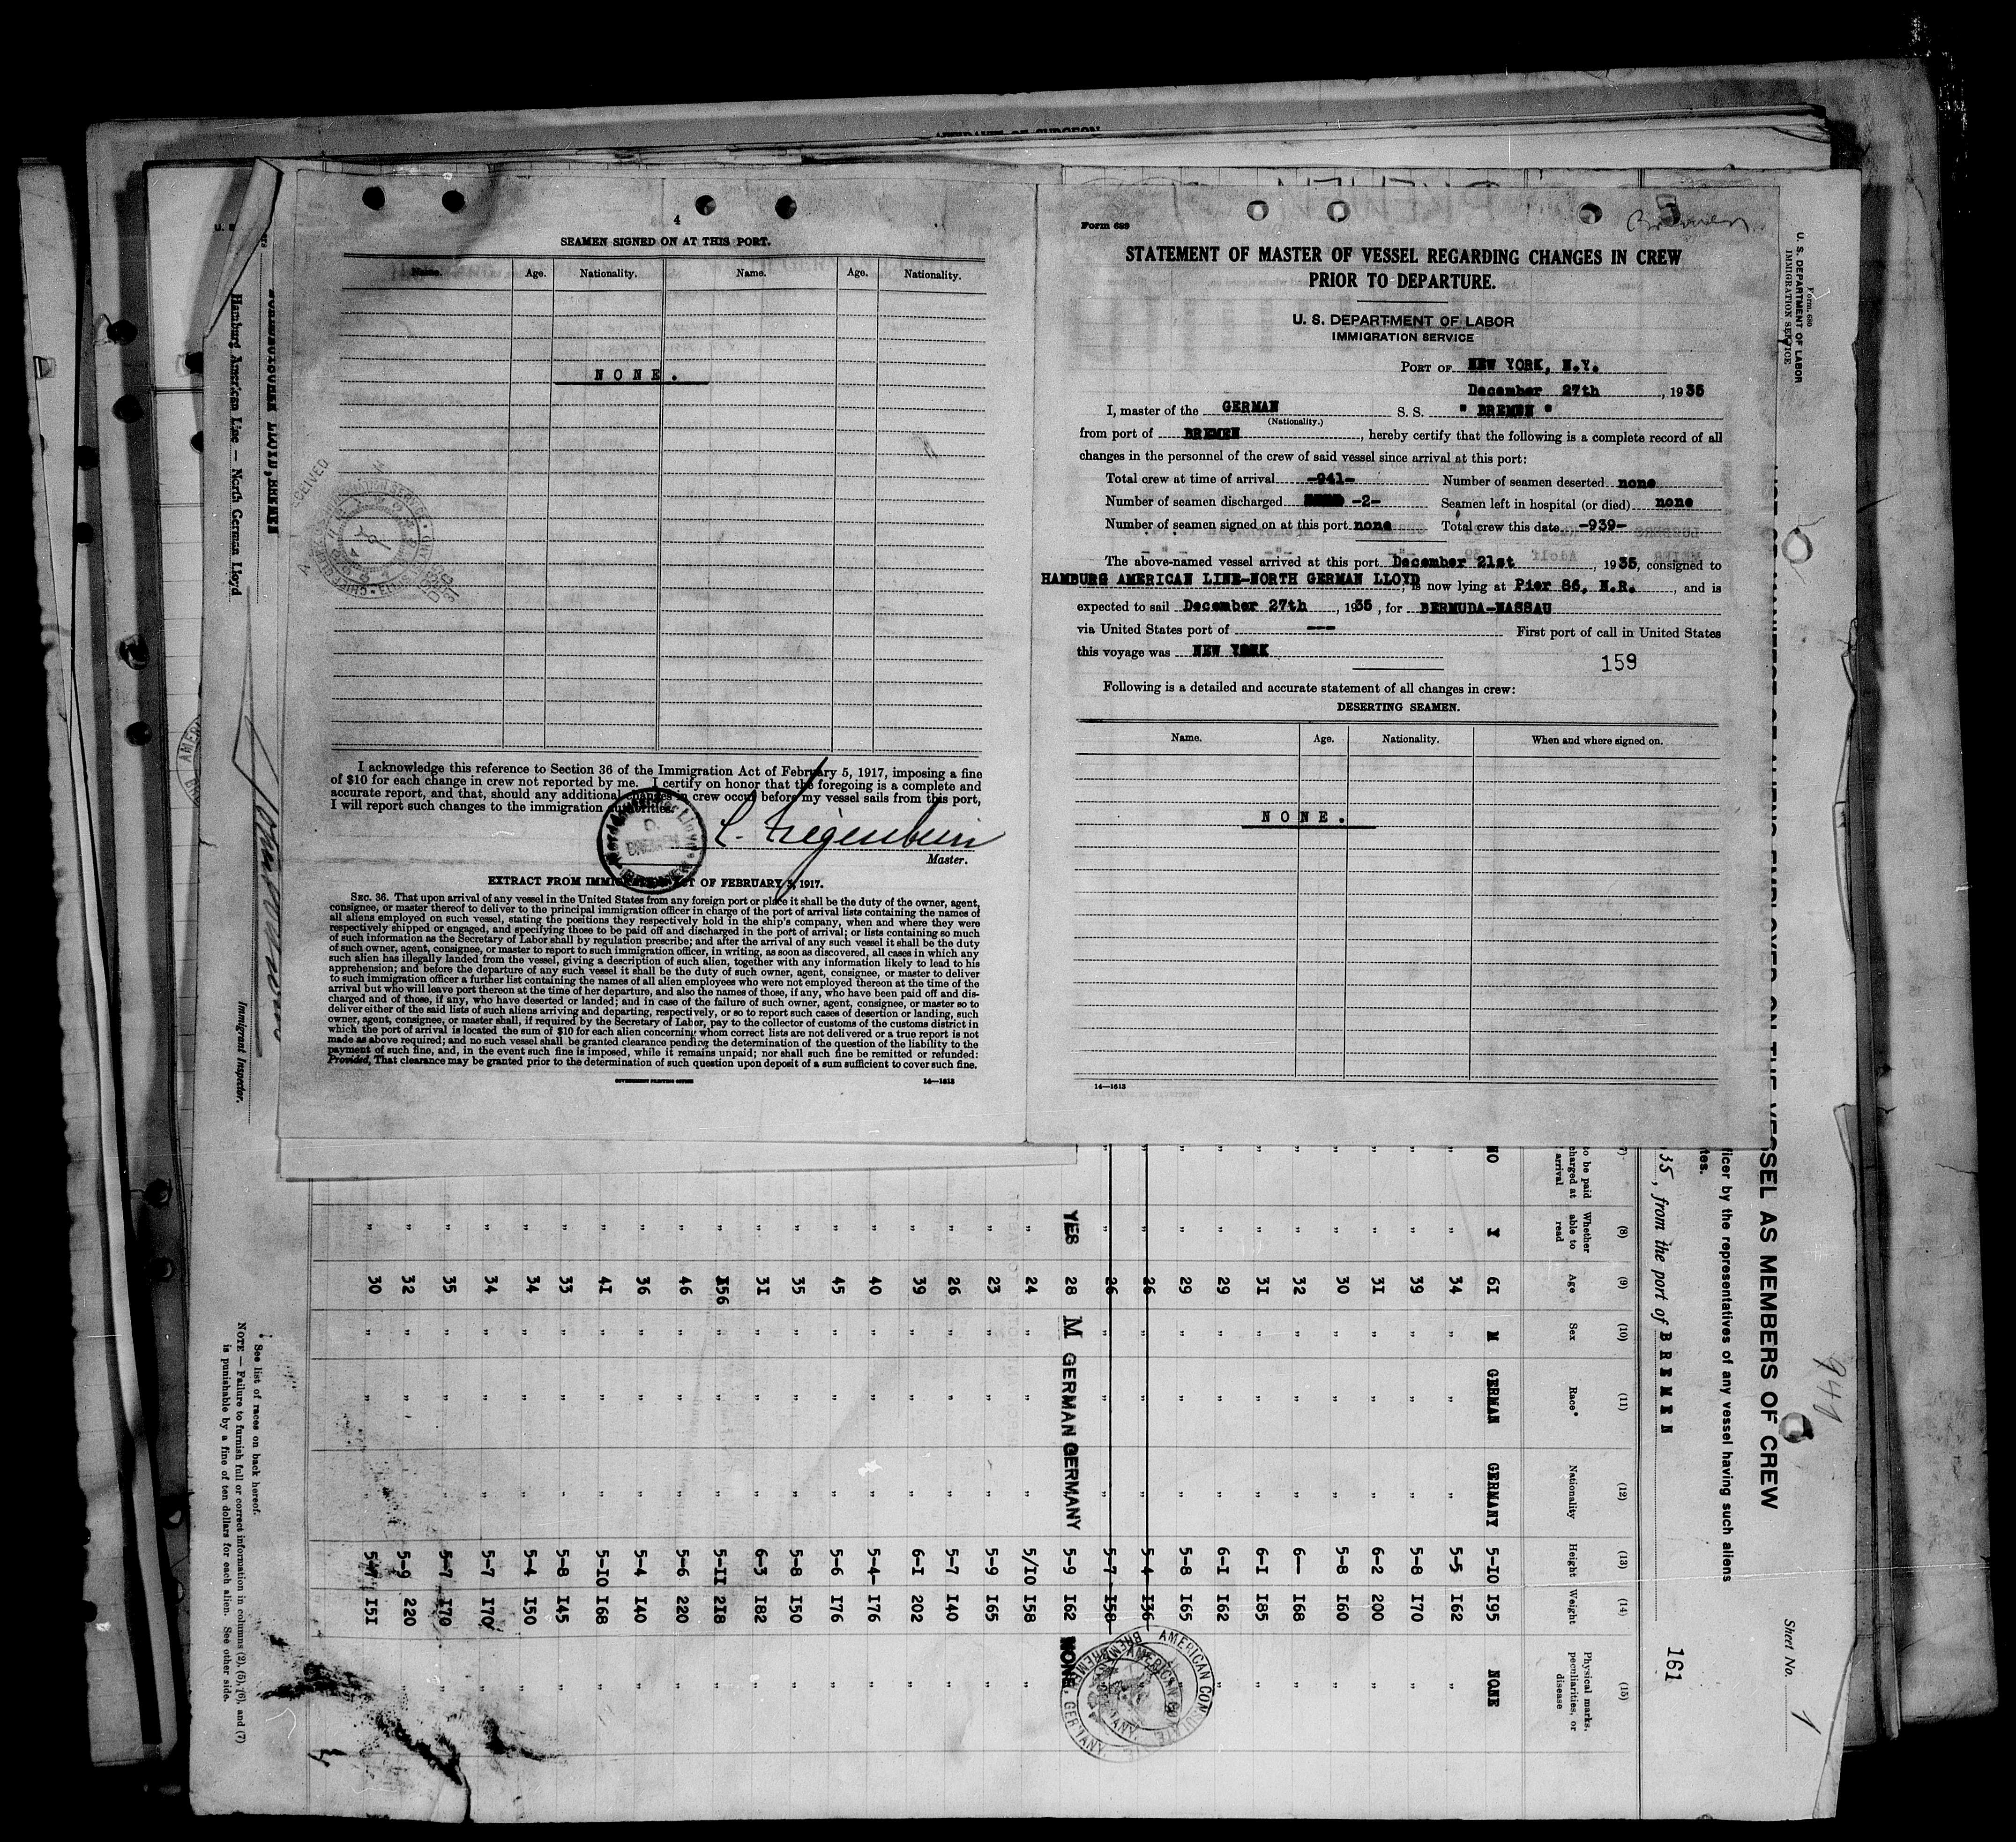 AFFIDAVIT OF SURGEON
4
SEAMEN SIGNED ON AT THIS PORT.
Name. Age. Nationality. Name. Age. Nationality.
NONE.
I acknowledge this reference to Section 36 of the Immigration Act of February 5, 1917, imposing a fine
of $10 for each change in crew not reported by me. I certify on honor that the foregoing is a complete and
accurate report, and that, should any additional changes in crew occur before my vessel sails from this port,
I will report such changes to the immigration authorities.
L. Ziegenbein
Master.
EXTRACT FROM IMMIGRATION ACT OF FEBRUARY 5, 1917.
SEC. 36. That upon arrival of any vessel in the United States from any foreign port or place it shall be the duty of the owner, agent,
consignee, or master thereof to deliver to the principal immigration officer in charge of the port of arrival lists containing the names of
all aliens employed on such vessel, stating the positions they respectively hold in the ship's company, when and where they were
respectively shipped or engaged, and specifying those to be paid off and discharged in the port of arrival; or lists containing so much
of such information as the Secretary of Labor shall by regulation prescribe; and after the arrival of any such vessel it shall be the duty
of such owner, agent, consignee, or master to report to such immigration officer, in writing, as soon as discovered, all cases in which any
such alien has illegally landed from the vessel, giving a description of such alien, together with any information likely to lead to his
apprehension; and before the departure of any such vessel it shall be the duty of such owner, agent, consignee, or master to deliver
to such immigration officer a further list containing the names of all alien employees who were not employed thereon at the time of the
arrival but who will leave port thereon at the time of her departure, and also the names of those, if any, who have been paid off and dis-
charged and of those, if any, who have deserted or landed; and in case of the failure of such owner, agent, consignee, or master so to
deliver either of the said lists of such aliens arriving and departing, respectively, or so to report such cases of desertion or landing, such
owner, agent, consignee, or master shall, if required by the Secretary of Labor, pay to the collector of customs of the customs district in
which the port of arrival is located the sum of $10 for each alien concerning whom correct lists are not delivered or a true report is not
made as above required; and no such vessel shall be granted clearance pending the determination of the question of the liability to the
payment of such fine, and, in the event such fine is imposed, while it remains unpaid; nor shall such fine be remitted or refunded:
Provided, That clearance may be granted prior to the determination of such question upon deposit of a sum sufficient to cover such fine.
GOVERNMENT PRINTING OFFICE 14—1613
Form 689
Bremen
STATEMENT OF MASTER OF VESSEL REGARDING CHANGES IN CREW
PRIOR TO DEPARTURE.
U. S. DEPARTMENT OF LABOR
IMMIGRATION SERVICE
PORT OF NEW YORK, N.Y.
December 27th, 1935
I, master of the GERMAN S. S. " BREMEN "
(Nationality.)
from port of BREMEN, hereby certify that the following is a complete record of all
changes in the personnel of the crew of said vessel since arrival at this port:
Total crew at time of arrival -941- Number of seamen deserted none
Number of seamen discharged -2- Seamen left in hospital (or died) none
Number of seamen signed on at this port none Total crew this date -939-
The above-named vessel arrived at this port December 21st, 1935, consigned to
HAMBURG AMERICAN LINE-NORTH GERMAN LLOYD, is now lying at Pier 86, N.R., and is
expected to sail December 27th, 1935, for BERMUDA-NASSAU
via United States port of --- First port of call in United States
this voyage was NEW YORK
159
Following is a detailed and accurate statement of all changes in crew:
DESERTING SEAMEN.
Name. Age. Nationality. When and where signed on.
NONE.
14—1613
Form 680
U. S. DEPARTMENT OF LABOR
IMMIGRATION SERVICE
VESSEL AS MEMBERS OF CREW
Sheet No. 1
officer by the representatives of any vessel having such aliens
35, from the port of BREMEN
161
(8) (9) (10) (11) (12) (13) (14) (15)
to be paid
charged at
arrival
Whether able to read Age Sex Race* Nationality Height Weight Physical marks, peculiarities, or disease
NO Y 61 M GERMAN GERMANY 5-10 195 NONE
" " 34 " " " 5-5 162 "
" " 39 " " " 5-8 170 "
" " 31 " " " 6-2 200 "
" " 30 " " " 5-8 160 "
" " 32 " " " 6— 168 "
" " 31 " " " 6-1 185 "
" " 29 " " " 6-1 162 "
" " 29 " " " 5-8 165 "
" " 26 " " " 5-4 136
" " 26 " " " 5-7 158
YES 28 M GERMAN GERMANY 5-9 162 NONE
" 24 " " " 5/10 158 "
" 23 " " " 5-9 165 "
" 26 " " " 5-7 140 "
" 39 " " " 6-1 202 "
" 40 " " " 5-4- 176 "
" 45 " " " 5-6 176 "
" 35 " " " 5-8 150 "
" 31 " " " 6-3 182 "
" 156 " " " 5-11 218 "
" 46 " " " 5-6 220 "
" 36 " " " 5-4 140 "
" 41 " " " 5-10 168 "
" 33 " " " 5-8 145 "
" 34 " " " 5-4 150 "
" 34 " " " 5-7 170 "
" 35 " " " 5-7 170 "
" 32 " " " 5-9 220 "
" 30 " " " 151 "
AMERICAN CONSULATE
BREMEN, GERMANY
* See list of races on back hereof.
NOTE — Failure to furnish full or correct information in columns (2), (5), (6), and (7)
is punishable by a fine of ten dollars for each alien. See other side.
LLOYD, BREMEN
Hamburg American Line — North German Lloyd
Immigrant Inspector.